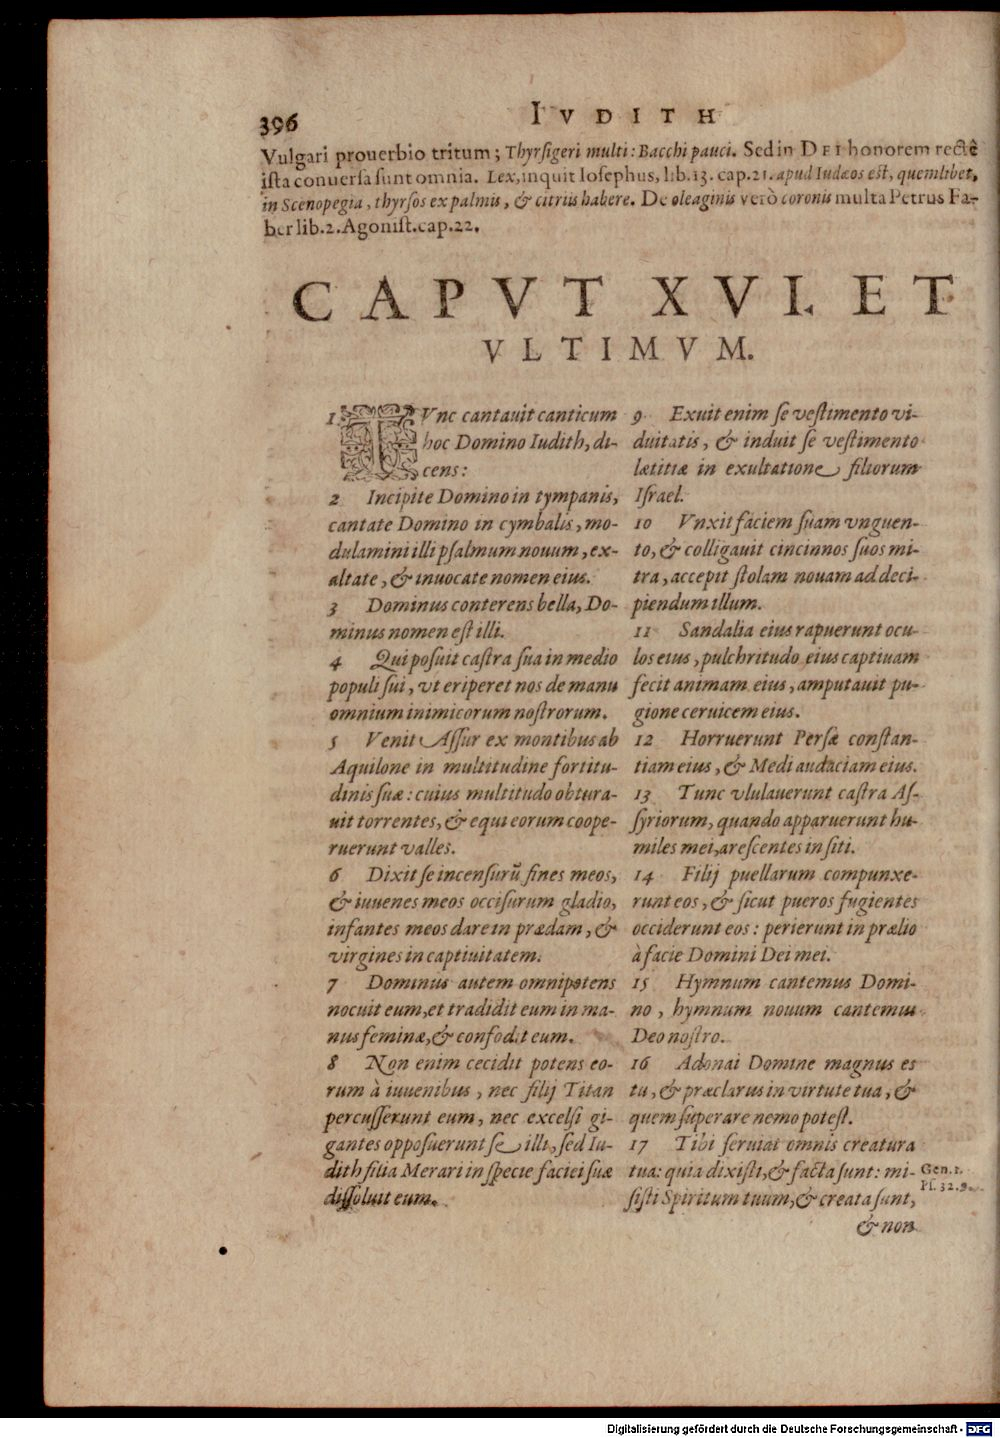 396
IVDITH
Vulgari prouerbio tritum; Thyrsigeri multi: Bacchi pauci. Sed in DEI honorem rectè
ista conuersa sunt omnia. Lex, inquit Iosephus, lib. 13. cap. 21. apud Iudæos est, quemlibet,
in Scenopegia, thyrsos ex palmis, & citriis habere. De oleaginis verò coronis multa Petrus Fa-
ber lib. 2. Agonist. cap. 22.
CAPVT XVI. ET
VLTIMVM.
1 TVnc cantauit canticum
hoc Domino Iudith, di-
cens:
2 Incipite Domino in tympanis,
cantate Domino in cymbalis, mo-
dulamini illi psalmum nouum, ex-
altate, & inuocate nomen eius.
3 Dominus conterens bella, Do-
minus nomen est illi.
4 Qui posuit castra sua in medio
populi sui, vt eriperet nos de manu
omnium inimicorum nostrorum.
5 Venit Assur ex montibus ab
Aquilone in multitudine fortitu-
dinis suæ: cuius multitudo obtura-
uit torrentes, & equi eorum coope-
ruerunt valles.
6 Dixit se incensurũ fines meos,
& iuuenes meos occisurum gladio,
infantes meos dare in prædam, &
virgines in captiuitatem.
7 Dominus autem omnipotens
nocuit eum, et tradidit eum in ma-
nus feminæ, & confodit eum.
8 Non enim cecidit potens eo-
rum à iuuenibus, nec filij Titan
percusserunt eum, nec excelsi gi-
gantes opposuerunt se illi, sed Iu-
dith filia Merari in specie faciei suæ
dissoluit eum.
9 Exuit enim se vestimento vi-
duitatis, & induit se vestimento
lætitiæ in exultatione filiorum
Israel.
10 Vnxit faciem suam vnguen-
to, & colligauit cincinnos suos mi-
tra, accepit stolam nouam ad deci-
piendum illum.
11 Sandalia eius rapuerunt ocu-
los eius, pulchritudo eius captiuam
fecit animam eius, amputauit pu-
gione ceruicem eius.
12 Horruerunt Persæ constan-
tiam eius, & Medi audaciam eius.
13 Tunc vlulauerunt castra As-
syriorum, quando apparuerunt hu-
miles mei, arescentes in siti.
14 Filij puellarum compunxe-
runt eos, & sicut pueros fugientes
occiderunt eos: perierunt in prælio
à facie Domini Dei mei.
15 Hymnum cantemus Domi-
no, hymnum nouum cantemus
Deo nostro.
16 Adonai Domine magnus es
tu, & præclarus in virtute tua, &
quem superare nemo potest.
17 Tibi seruiat omnis creatura
tua: quia dixisti, & facta sunt: mi-
sisti Spiritum tuum, & creata sunt,
& non
Gen. 1.
Ps. 32. 9.
Digitalisierung gefördert durch die Deutsche Forschungsgemeinschaft - DFG